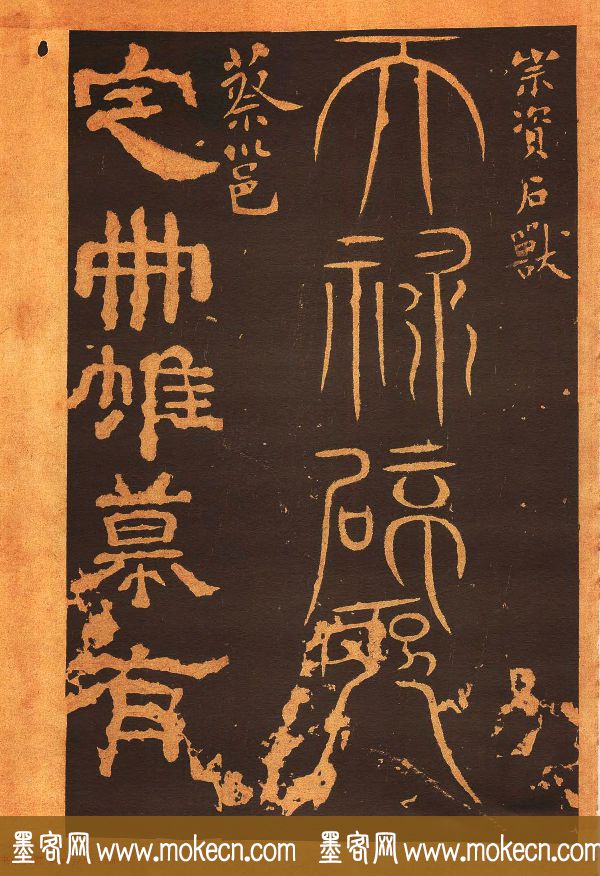 宗資石獸
天祿
蔡邕
定冊帷幕有
墨客网 www.mokecn.com 墨客网 www.mokecn.com